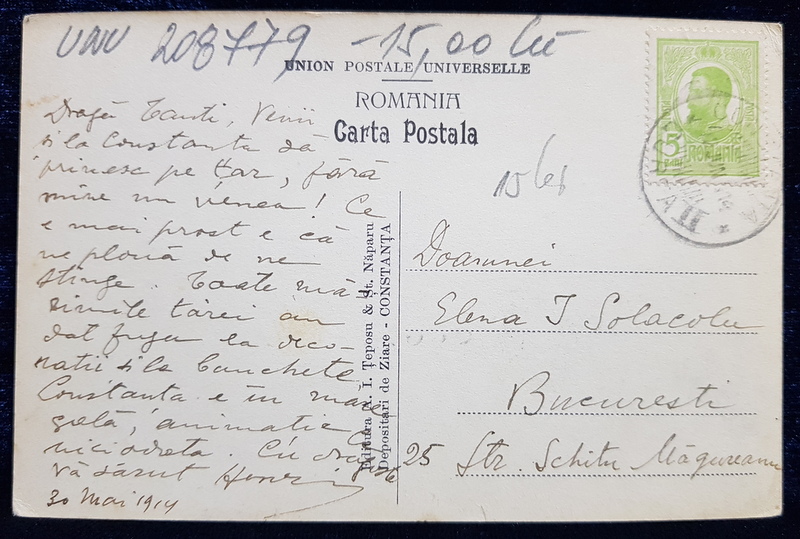 UNU 208779 -15,00 lei
UNION POSTALE UNIVERSELLE
ROMANIA
Carta Postala
15 lei
5 BANI
ROMANIA
Dragă Tanti, Venii
si la Constanta să
privesc pe țar, fără
mine nu venea! Ce
e mai prost e că
ne plouă de ne
stinge. Toate mă-
rimile tărei au
dat fuga la deco-
ratii si la banchete
Constanta e în mare
gală, animatie
niciodata. Cu dragoste
Vă sărut Henri
30 Mai 1914
Editura A. I. Țeposu & St. Năparu
Depositari de Ziare - CONSTANȚA
Doamnei
Elena I Solacolu
Bucuresti
25 Str. Schitu Măgureanu